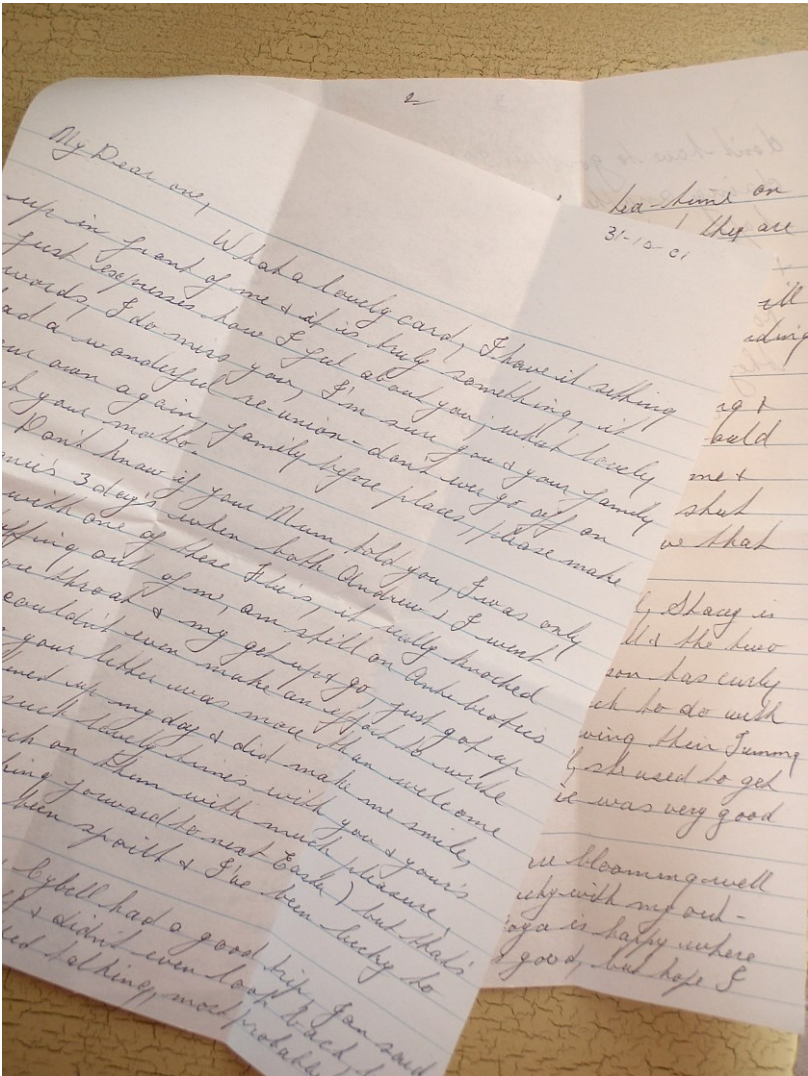 My Dear one,
31-10-01
What a lovely card, I have it sitting
up in front of me & it is truly something, it
just expresses how I feel about you; what lovely
words, I do miss you, I'm sure you & your family
ad a wonderful re-union - don't we go off on
our own again, family before places, please make
your motto.
Don't know if your Mum told you, I was only
3 days when both Andrew & I went
with one of these Flu's, it really knocked
out of me, am still on Antibiotics
throat & my get up & go, just got up
couldn't even make an effort to write
your letter was more than welcome
up my day & did make me smile,
such lovely times with you & your's
on them with much pleasure,
forward to next Easter) but that's
been spoilt & I've been lucky to
Cybell had a good trip, Jan said
& didn't even look back
talking, most probably
2
tea-time on
they are
ill
ading
&
ould
me &
shut
that
Stacy is
& the two
son has curly
to do with
their Tummy
she used to get
was very good
blooming well
with my out-
is happy where
good, but hope I